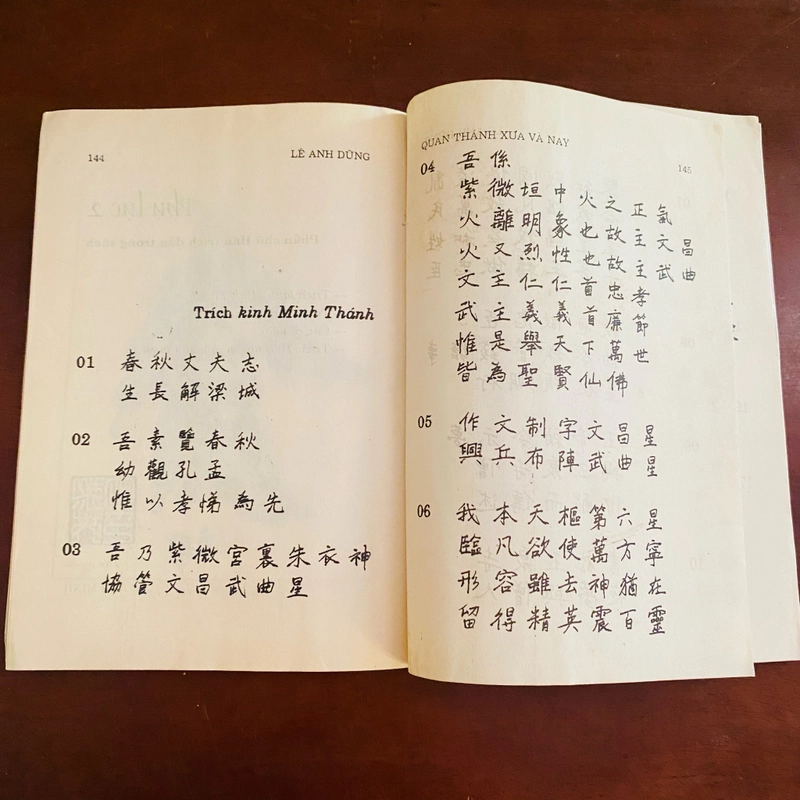 144
LÊ ANH DŨNG
Trích kinh Minh Thánh
01 春秋丈夫志
生長解梁城
02 吾素覽春秋
幼觀孔孟
惟以孝悌為先
03 吾乃紫微宮裏朱衣神
協管文昌武曲星
QUAN THÁNH XƯA VÀ NAY
145
04 吾係
紫微垣中火之正氣
火離明象也故主文昌
火又烈性也故主武曲
文主仁仁首忠孝
武主義義首廉節
惟是舉天下萬世
皆為聖賢仙佛
05 作文制字文昌星
興兵布陣武曲星
06 我本天樞第六星
臨凡欲使萬方寧
形容雖去神猶在
留得精英震百靈